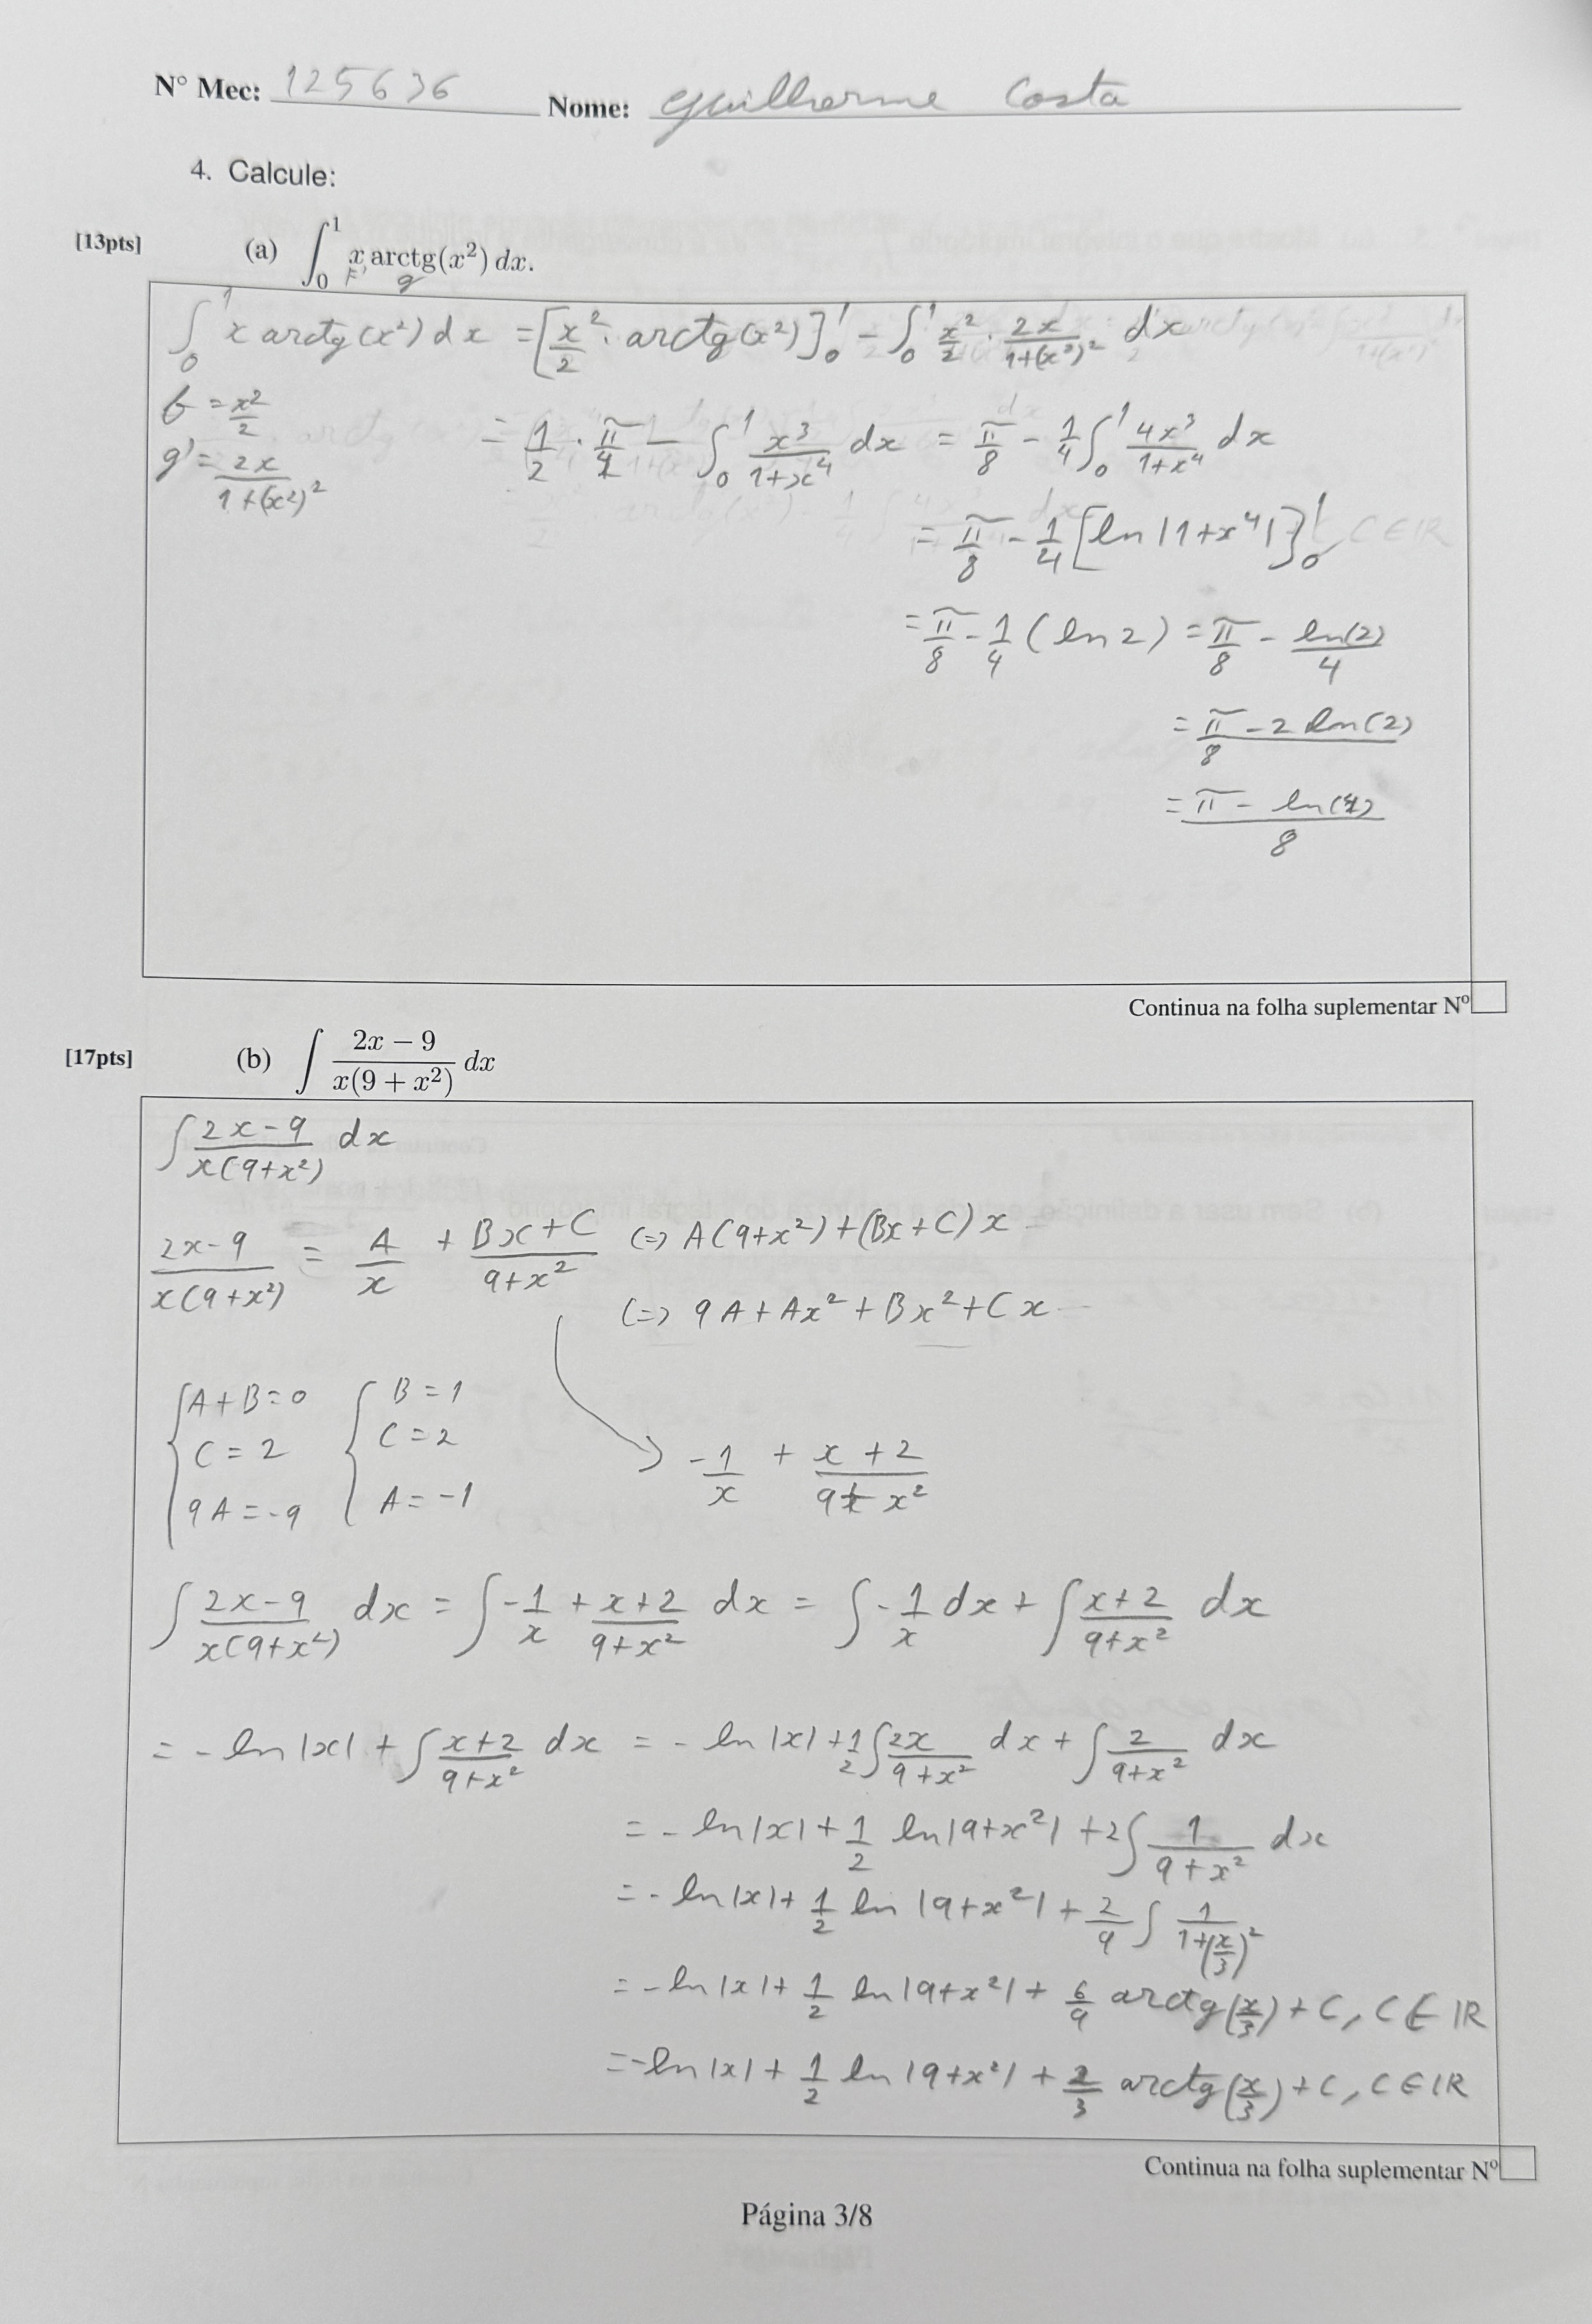 N° Mec: 125636 Nome: Guilherme Costa
4. Calcule:
[13pts] (a) ∫₀¹ x arctg(x²) dx.
F' g
∫₀¹ x arctg(x²) dx = [x²/2 · arctg(x²)]₀¹ - ∫₀¹ x²/2 · 2x/(1+(x²)²) dx
f = x²/2
= 1/2 · π/4 - ∫₀¹ x³/(1+x⁴) dx = π/8 - 1/4 ∫₀¹ 4x³/(1+x⁴) dx
g' = 2x/(1+(x²)²)
= π/8 - 1/4 [ln |1+x⁴|]₀¹
= π/8 - 1/4 (ln 2) = π/8 - ln(2)/4
= (π - 2 ln(2))/8
= (π - ln(4))/8
Continua na folha suplementar Nº
[17pts] (b) ∫ (2x - 9)/(x(9 + x²)) dx
∫ (2x-9)/(x(9+x²)) dx
(2x-9)/(x(9+x²)) = A/x + (Bx+C)/(9+x²) (=) A(9+x²)+(Bx+C)x
(=) 9A+Ax²+Bx²+Cx
{A+B=0 {B=1
C=2 C=2
9A=-9 A=-1
-1/x + (x+2)/(9+x²)
∫ (2x-9)/(x(9+x²)) dx = ∫ -1/x + (x+2)/(9+x²) dx = ∫ -1/x dx + ∫ (x+2)/(9+x²) dx
= - ln |x| + ∫ (x+2)/(9+x²) dx = - ln |x| + 1/2 ∫ 2x/(9+x²) dx + ∫ 2/(9+x²) dx
= - ln |x| + 1/2 ln |9+x²| + 2 ∫ 1/(9+x²) dx
= - ln |x| + 1/2 ln |9+x²| + 2/9 ∫ 1/(1+(x/3)²)
= - ln |x| + 1/2 ln |9+x²| + 6/9 arctg(x/3) + C, C ∈ ℝ
= - ln |x| + 1/2 ln |9+x²| + 2/3 arctg(x/3) + C, C ∈ ℝ
Continua na folha suplementar Nº
Página 3/8